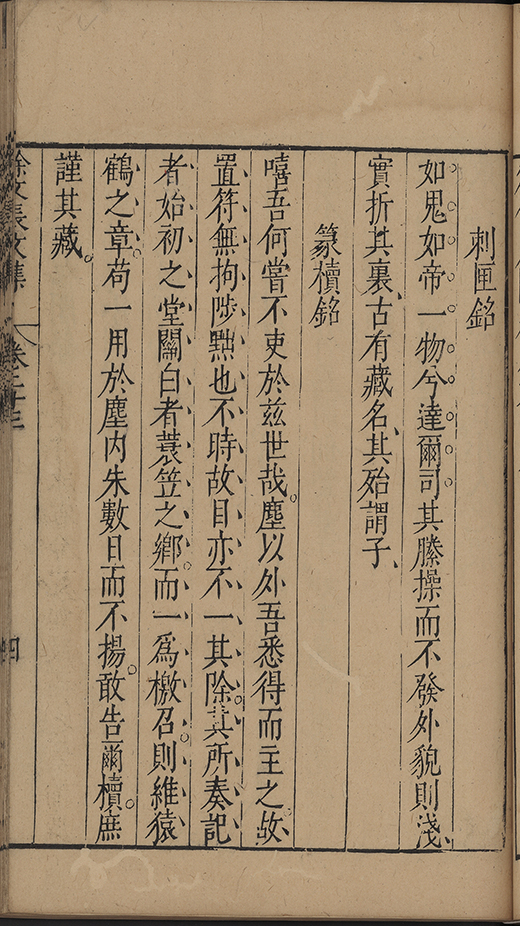 刺匣銘
如鬼如帝一物兮達爾司其縢操而不發外貌則淺
實折其裏古有藏名其殆謂子
篆櫝銘
嘻吾何嘗不吏於兹世哉塵以外吾悉得而主之故
置符無拘陟黜也不時故目亦不一其除其所奏記
者始初之堂關白者蓑笠之鄉而一爲檄召則維猿
鶴之章荷一用於塵内朱數日而不揚敢告爾櫝庶
謹其藏
徐文長文集
卷二十三
四